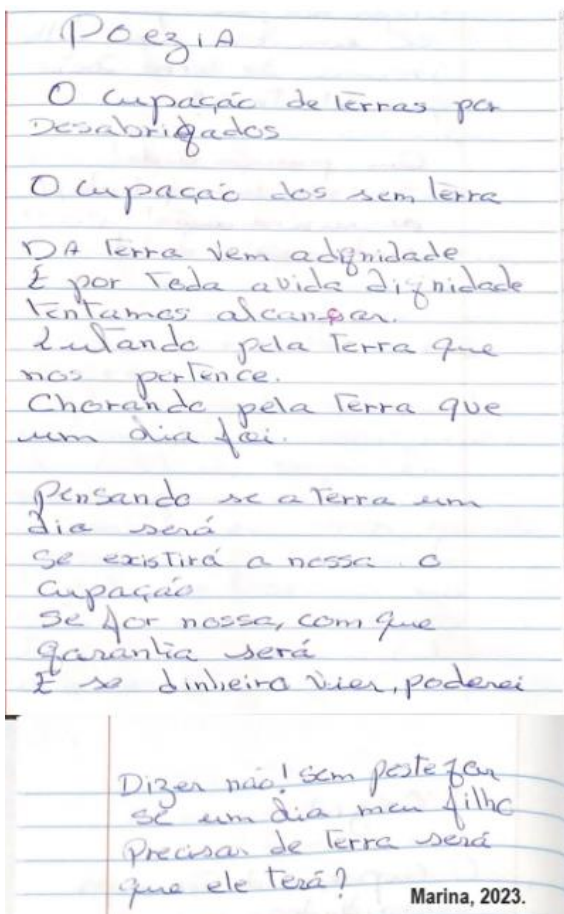 Poezia
O cupação de terras por
Desabrigados
O cupação dos sem terra
DA terra vem adignidade
E por toda avida dignidade
tentamos alcançar.
Lutando pela terra que
nos pertence.
Chorando pela terra que
um dia foi.
Pensando se a terra um
dia será
se existirá a nossa o
cupação
se for nossa, com que
garantia será
E se dinheiro vier, poderei
Dizer não! sem pestejar
se um dia meu filho
precisar de terra será
que ele terá?
Marina, 2023.